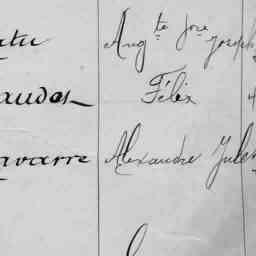 Aug te Jne Joseph
audes Félix
avarre Alexandre Jules